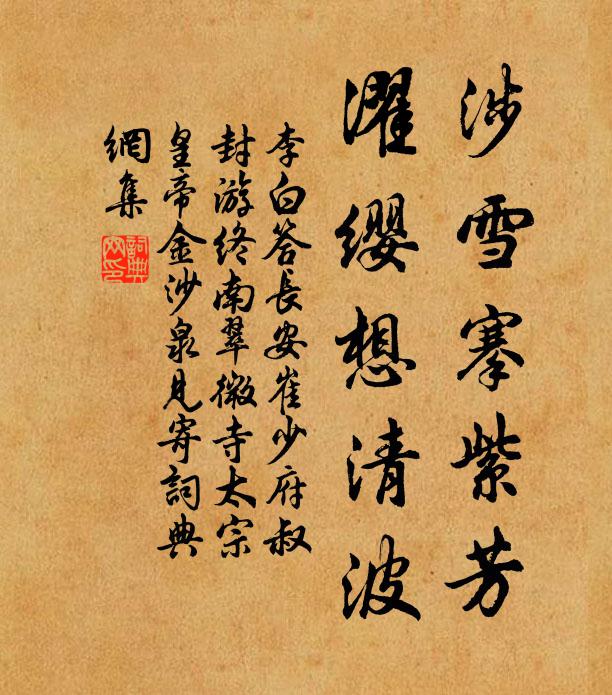 涉雪搴紫芳
濯缨想清波
李白答长安崔少府叔
封游终南翠微寺太宗
皇帝金沙泉见寄詞典
網集
詞典
网印